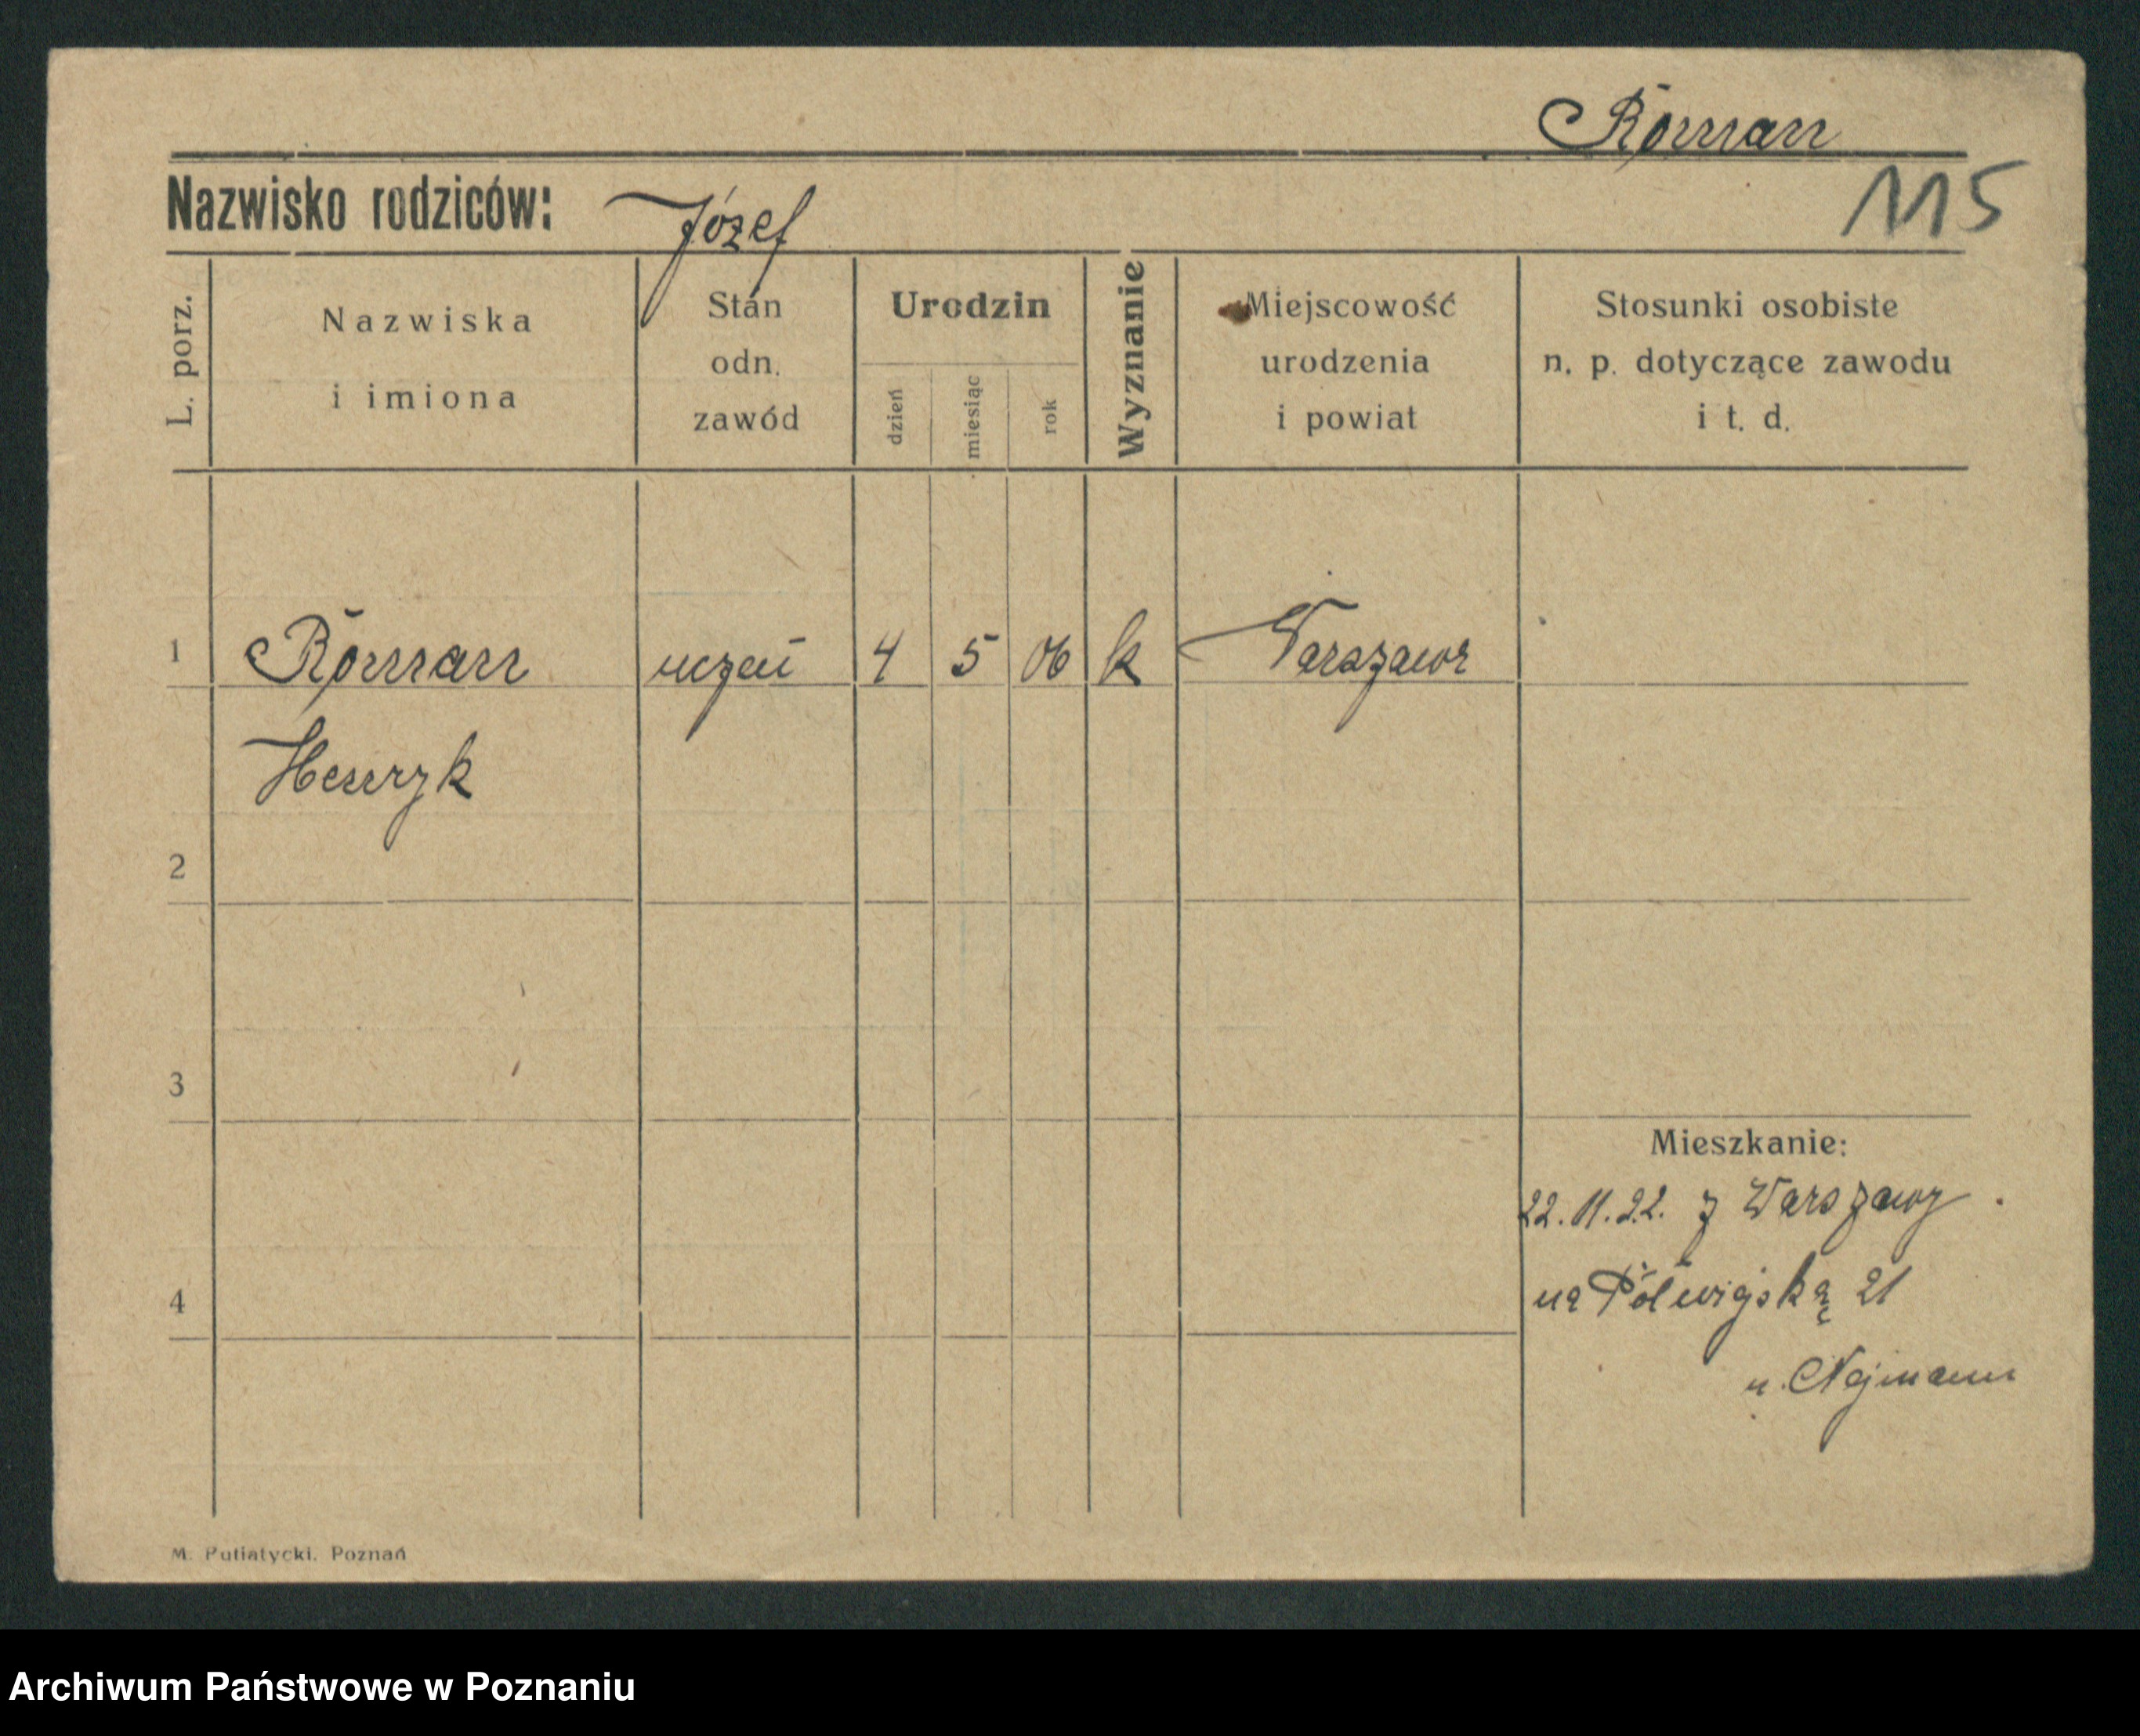 Roman
115
Nazwisko rodziców: Józef
L. porz.
Nazwiska i imiona
Stan odn. zawód
Urodzin
dzień
miesiąc
rok
Wyznanie
Miejscowość urodzenia i powiat
Stosunki osobiste n. p. dotyczące zawodu i t. d.
1 Roman uczeń 4 5 06 k Warszawa
Henryk
2
3
Mieszkanie:
22.11.22. z Warszawy
na Półwiejską 21
4
u. Nejmann
M. Putiatycki. Poznań
Archiwum Państwowe w Poznaniu